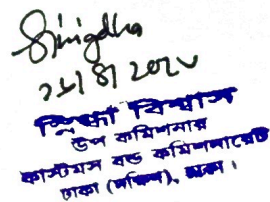 Snigdha
২৮/৪/২০২৮
স্নিগ্ধা বিশ্বাস
উপ কমিশনার
কাস্টমস বন্ড কমিশনারেট
ঢাকা (দক্ষিণ), ঢাকা।